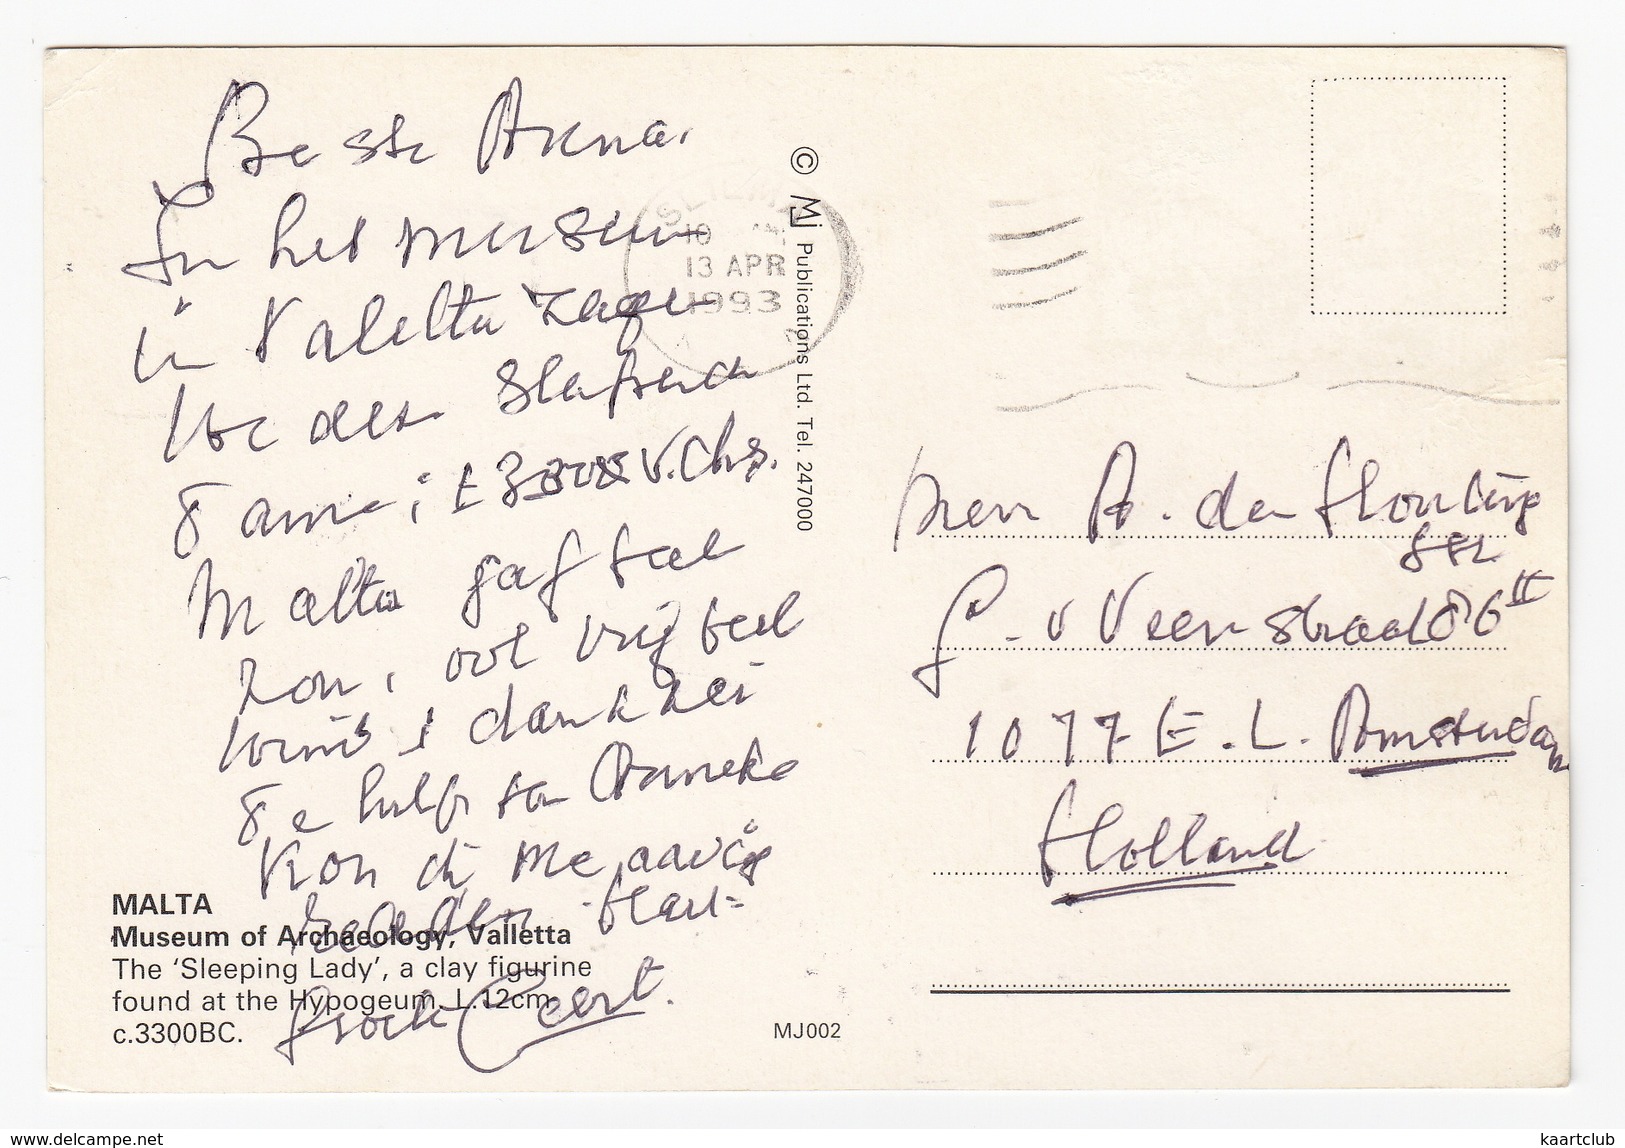 Beste Anna.
In het museum
in Valetta zagen
we deze slapende
Dame; ± 3300 v. Chr.
Malta gaf veel
zon, ook vrij veel
wind, dankzij
de hulp van Anneke
kon ik me aardig
redden. Hart=
Groet Geert.
MALTA
Museum of Archaeology, Valletta
The ‘Sleeping Lady’, a clay figurine
found at the Hypogeum. L.12cm.
c.3300BC.
MJ002
© MJ Publications Ltd. Tel. 247000
SLIEMA
13 APR
1993
A. den
G. v Veenstraat 86 II
1077 E.L. Amsterdam
Holland
www.delcampe.net
kaartclub